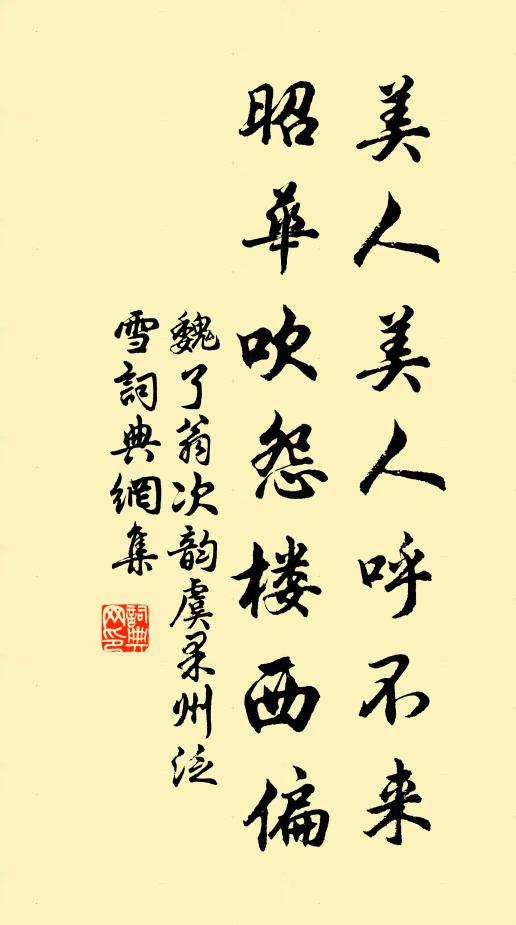 美人美人呼不来
昭华吹怨楼西偏
魏了翁次韵虞果州泛
雪詞典網集
詞典网印